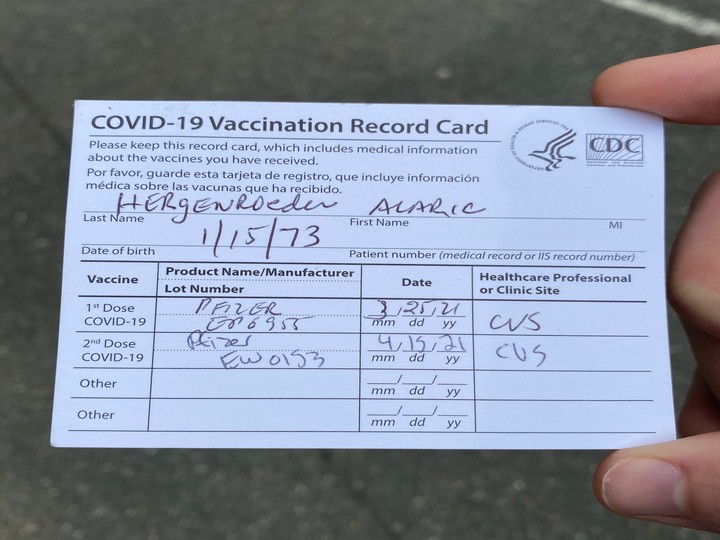 COVID-19 Vaccination Record Card
CDC
Please keep this record card, which includes medical information
about the vaccines you have received.
Por favor, guarde esta tarjeta de registro, que incluye información
médica sobre las vacunas que ha recibido.
HERgENROeder ALARIC
Last Name First Name MI
1/15/73
Date of birth Patient number (medical record or IIS record number)
Vaccine Product Name/Manufacturer Date Healthcare Professional
Lot Number or Clinic Site
1st Dose PFIZER 3/25/21 CVS
COVID-19 mm dd yy
2nd Dose Pfizer 4/15/21 CVS
COVID-19 EW0153 mm dd yy
Other
mm dd yy
Other
mm dd yy